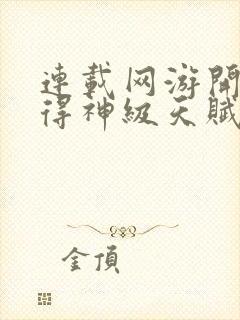 連載网游開
得神級天賦
金頂